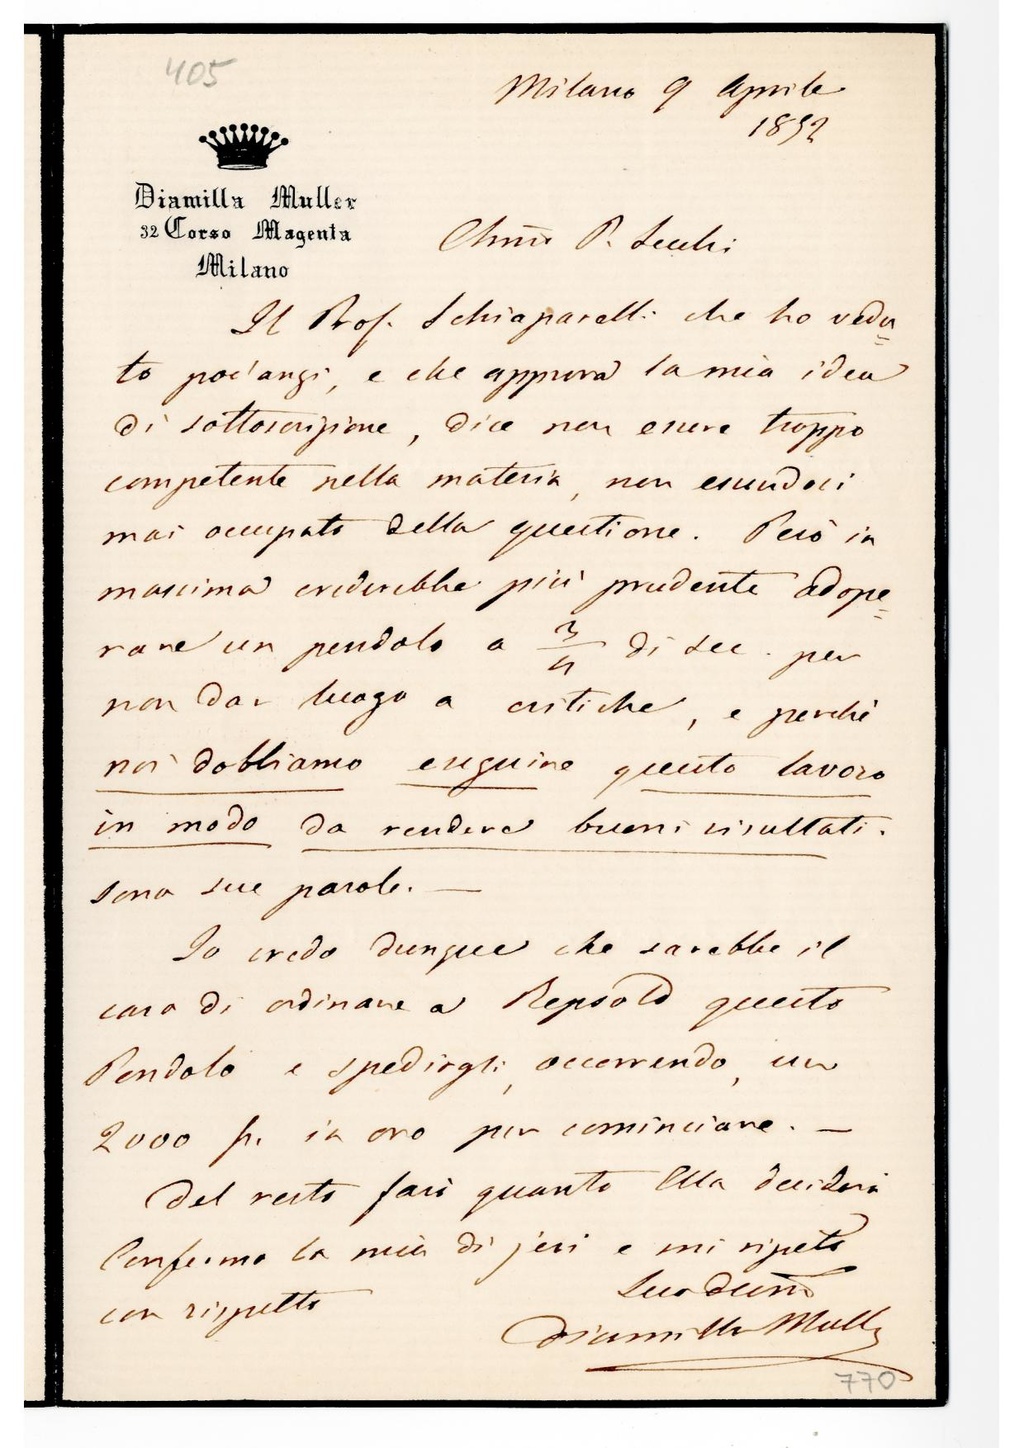 405
Milano 9 Aprile
1892
Diamilla Muller
32 Corso Magenta
Milano
Chmo P. Secchi
Il Prof. Schiaparelli che ho vedu=
to poc'anzi, e che approva la mia idea
di sottoscrizione, dice non essere troppo
competente nella materia, non essendosi
mai occupato della questione. Però in
massima crederebbe più prudente adope=
rare un pendolo a 3/4 di sec. per
non dar luogo a critiche, e perchè
noi dobbiamo eseguire questo lavoro
in modo da rendere buoni risultati.
sono sue parole. —
Io credo dunque che sarebbe il
caso di ordinare a Repsold questo
Pendolo e spedirgli, occorrendo, un
2000 fr. in oro per cominciare. —
Del resto farò quanto Ella deciderà
Confermo la mia di jeri e mi ripeto
con rispetto
Suo Devmo
Diamilla Muller
770